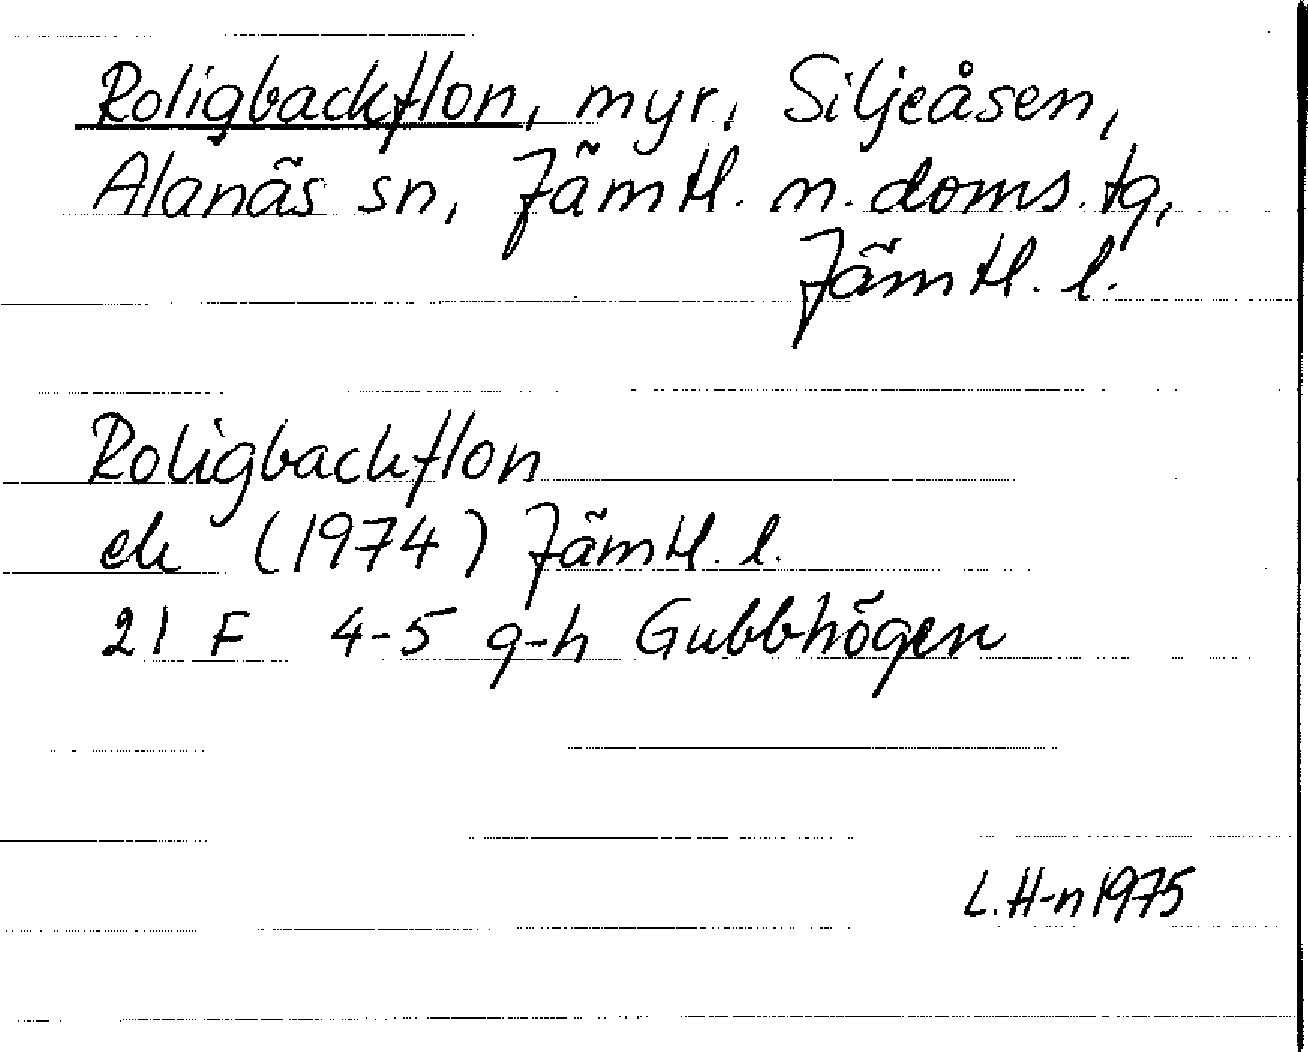 Roligbackflon, myr, Siljeåsen,
Alanäs sn, Jämtl. n. doms. tg,
Jämtl. l.
Roligbackflon
ek (1974) Jämtl. l.
21 F 4-5 g-h Gubbhögen
L. H-n 1975